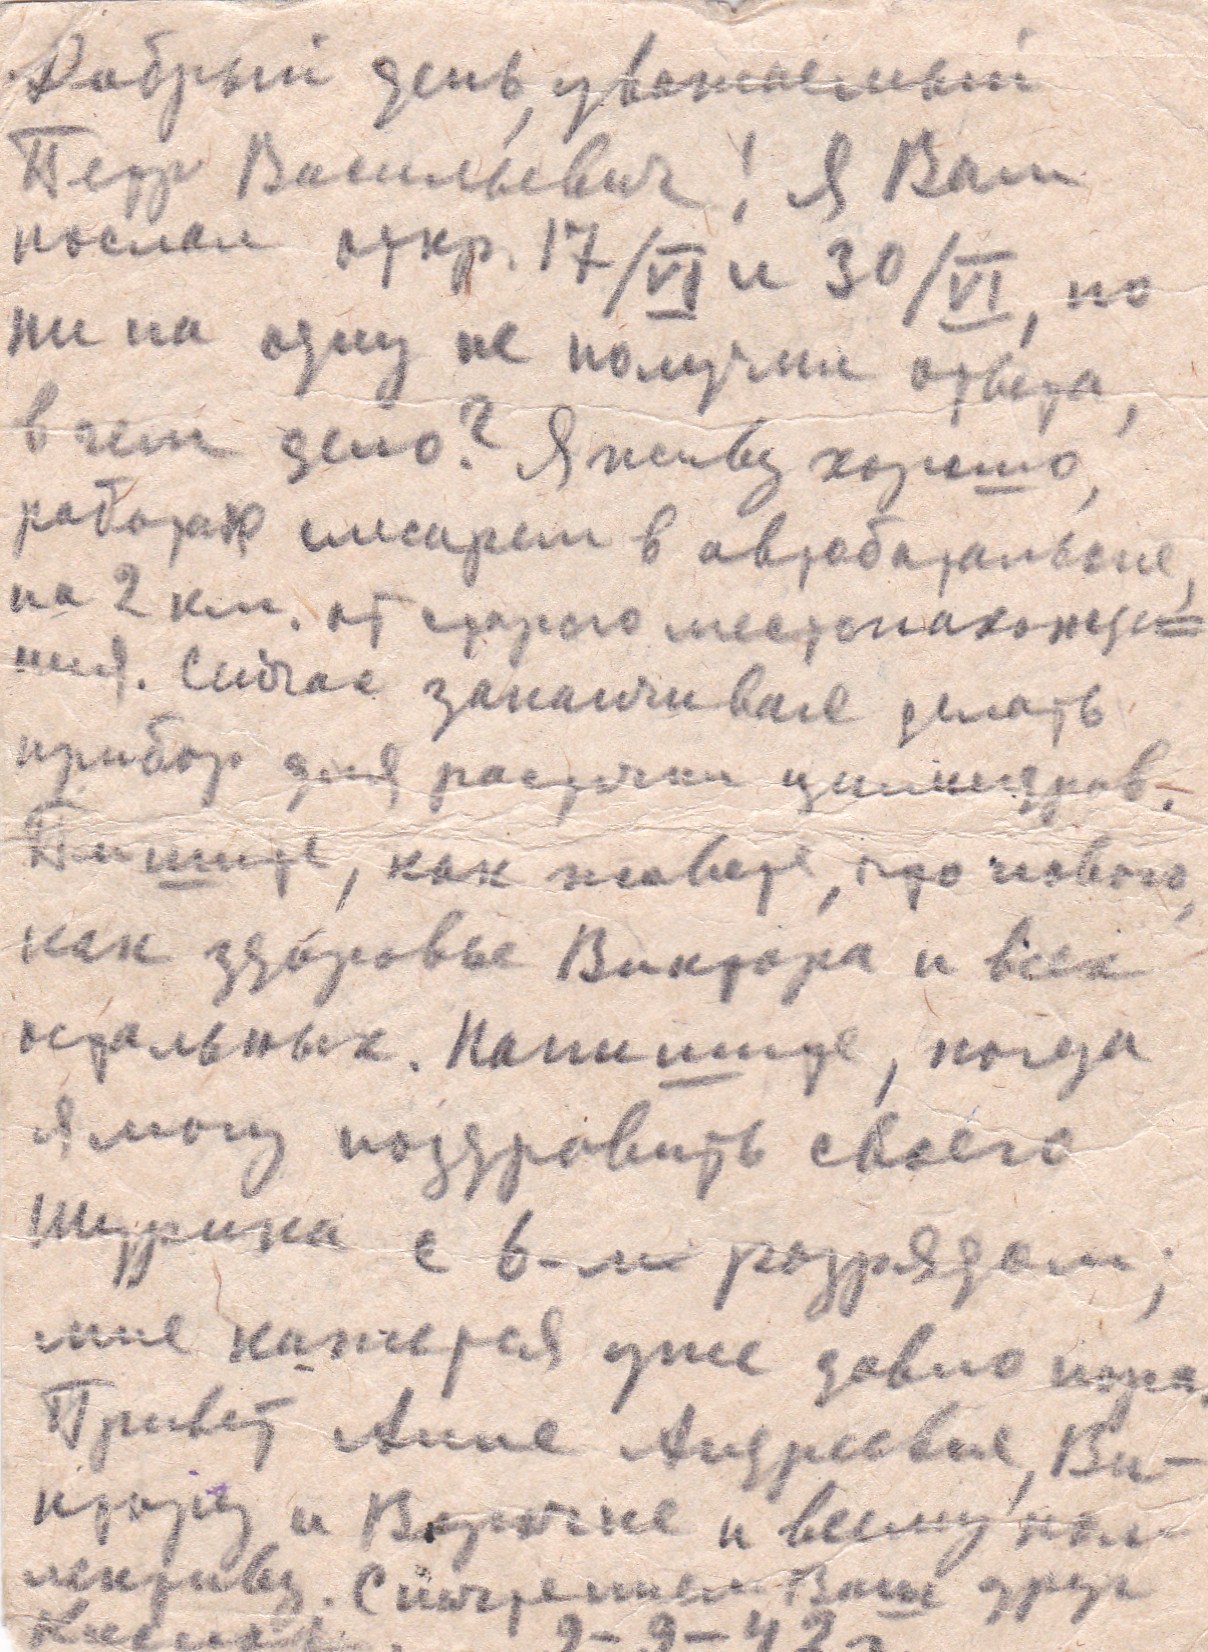 Добрый день, уважаемый
Петр Васильевич! Я Вам
послал откр. 17/VI и 30/VI, но
ни на одну не получил ответа,
в чем дело? Я живу хорошо,
работаю слесарем в автобатальоне,
на 2 км. от старого местонахожде=
ния. Сейчас заканчиваю делать
прибор для расточки цилиндров.
Пишите, как живете, что нового,
как здоровье Виктора и всех
остальных. Напишите, когда
я могу поздравить своего
Шурика с 6-м разрядом;
мне кажется уже давно пора.
Привет Анне Андреевне, Ви-
ктору и Верочке и всему кол-
лективу. С почтением Ваш друг
2-9-42 г